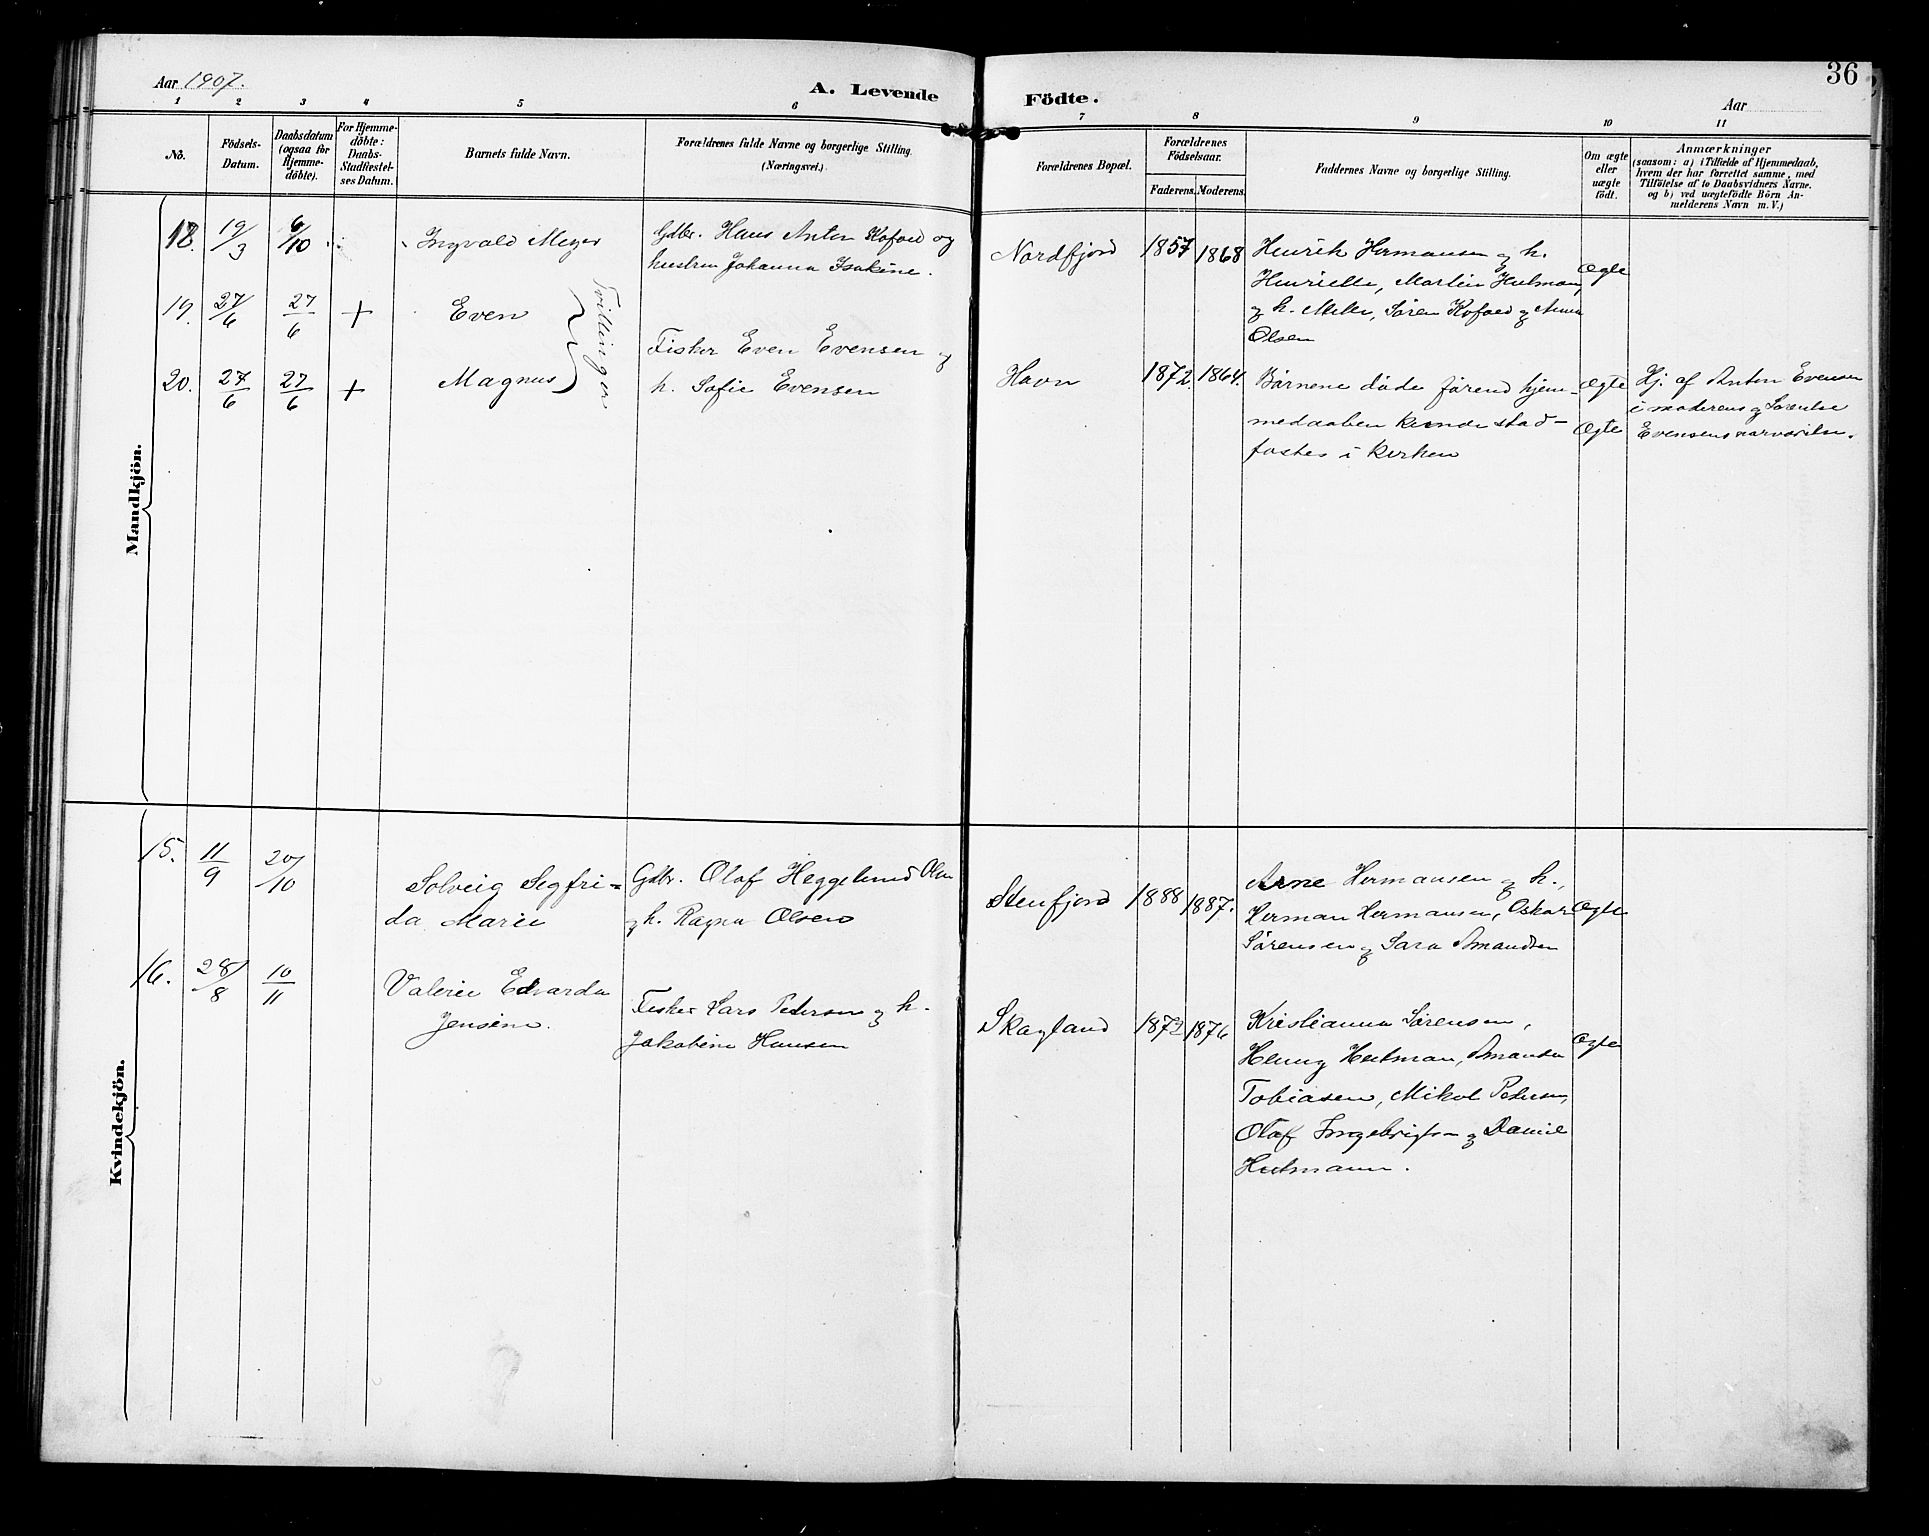 36
Aar 1907.
A. Levende Födte.
Aar
1 2 3 4 5 6 7 8 9 10 11
No.
Födsels-
Datum.
Daabsdatum
(ogsaa for
Hjemme-
döbte).
For Hjemme-
döbte:
Daabs-
Stadfæstel-
ses Datum.
Barnets fulde Navn.
Forældrenes fulde Navne og borgerlige Stilling.
(Næringsvei.)
Forældrenes Bopæl.
Forældrenes
Födselsaar.
Faderens.
Moderens.
Faddernes Navne og borgerlige Stilling.
Om ægte
eller
uægte
födt.
Anmærkninger
(saasom: a) i Tilfælde af Hjemmedaab,
hvem der har forrettet samme, med
Tilföielse af to Daabsvidners Navne.
og b) ved uægtefödte Börn An-
melderens Navn m. V.)
Mandkjön.
18. 19/3 6/10 Ingvald Meyer
Gdbr. Hans Anton Kofoed og
hustru Johanna Isakine.
Nordfjord 1857 1868
Henrik Hermansen og h.
Henriette, Martin Heitman,
og h. Mette, Sören Kofoed og Anna
Olsen
Ægte
19. 27/6 27/6 + Even
20. 27/6 27/6 + Magnus
Tvillinger
Fisker Even Evensen og
h. Sofie Evensen
Havn 1872. 1864.
Börnene döde förend hjem-
medaaben kunde stad-
fæstes i kirken
Ægte
Ægte
Hj. af Anton Evensen
i moderens og Sörentse
Evensens nærværelse.
Kvindekjön.
15. 11/9 20/10 Solveig Segfri-
da Marie
Gdbr. Olaf Heggelund Olsen
og h. Ragna Olsen
Stenfjord 1888 1887.
Arne Hermansen og h.,
Herman Hermansen, Oskar
Sörensen og Sara Amandsen
Ægte
16. 28/8 10/11 Valerie Edvarda
Jensine.
Fisker Lars Pedersen og h.
Jakobine Hansen
Skagland 1872 1876
Kristianna Sörensen,
Henny Heitman, Amanda
Tobiasen, Mikal Pedersen,
Olaf Ingebrigtsen og Daniel
Heitmann.
Ægte